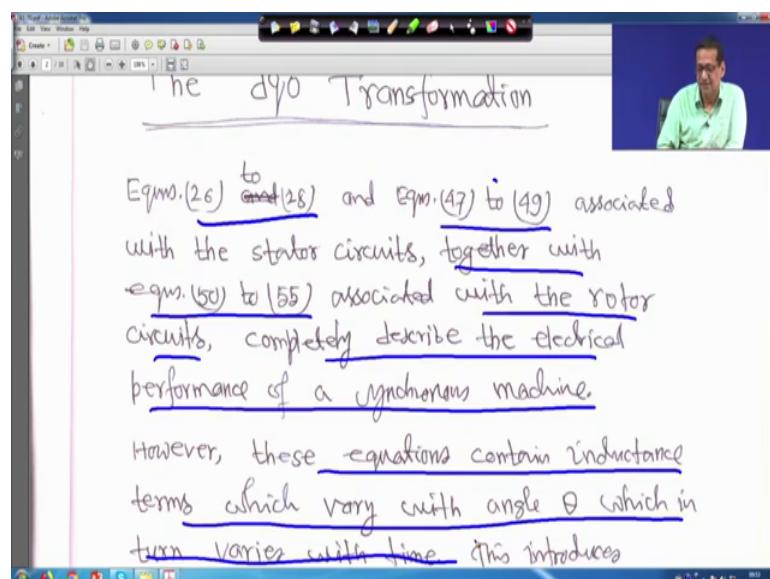 File Edit View Window Help
Create
The dq0 Transformation
to
Eqns. (26) and (28) and Eqn. (47) to (49) associated
with the stator circuits, together with
eqns. (50) to (55) associated with the rotor
circuits, completely describe the electrical
performance of a synchronous machine.
However, these equations contain inductance
terms which vary with angle θ which in
turn varies with time. This introduces